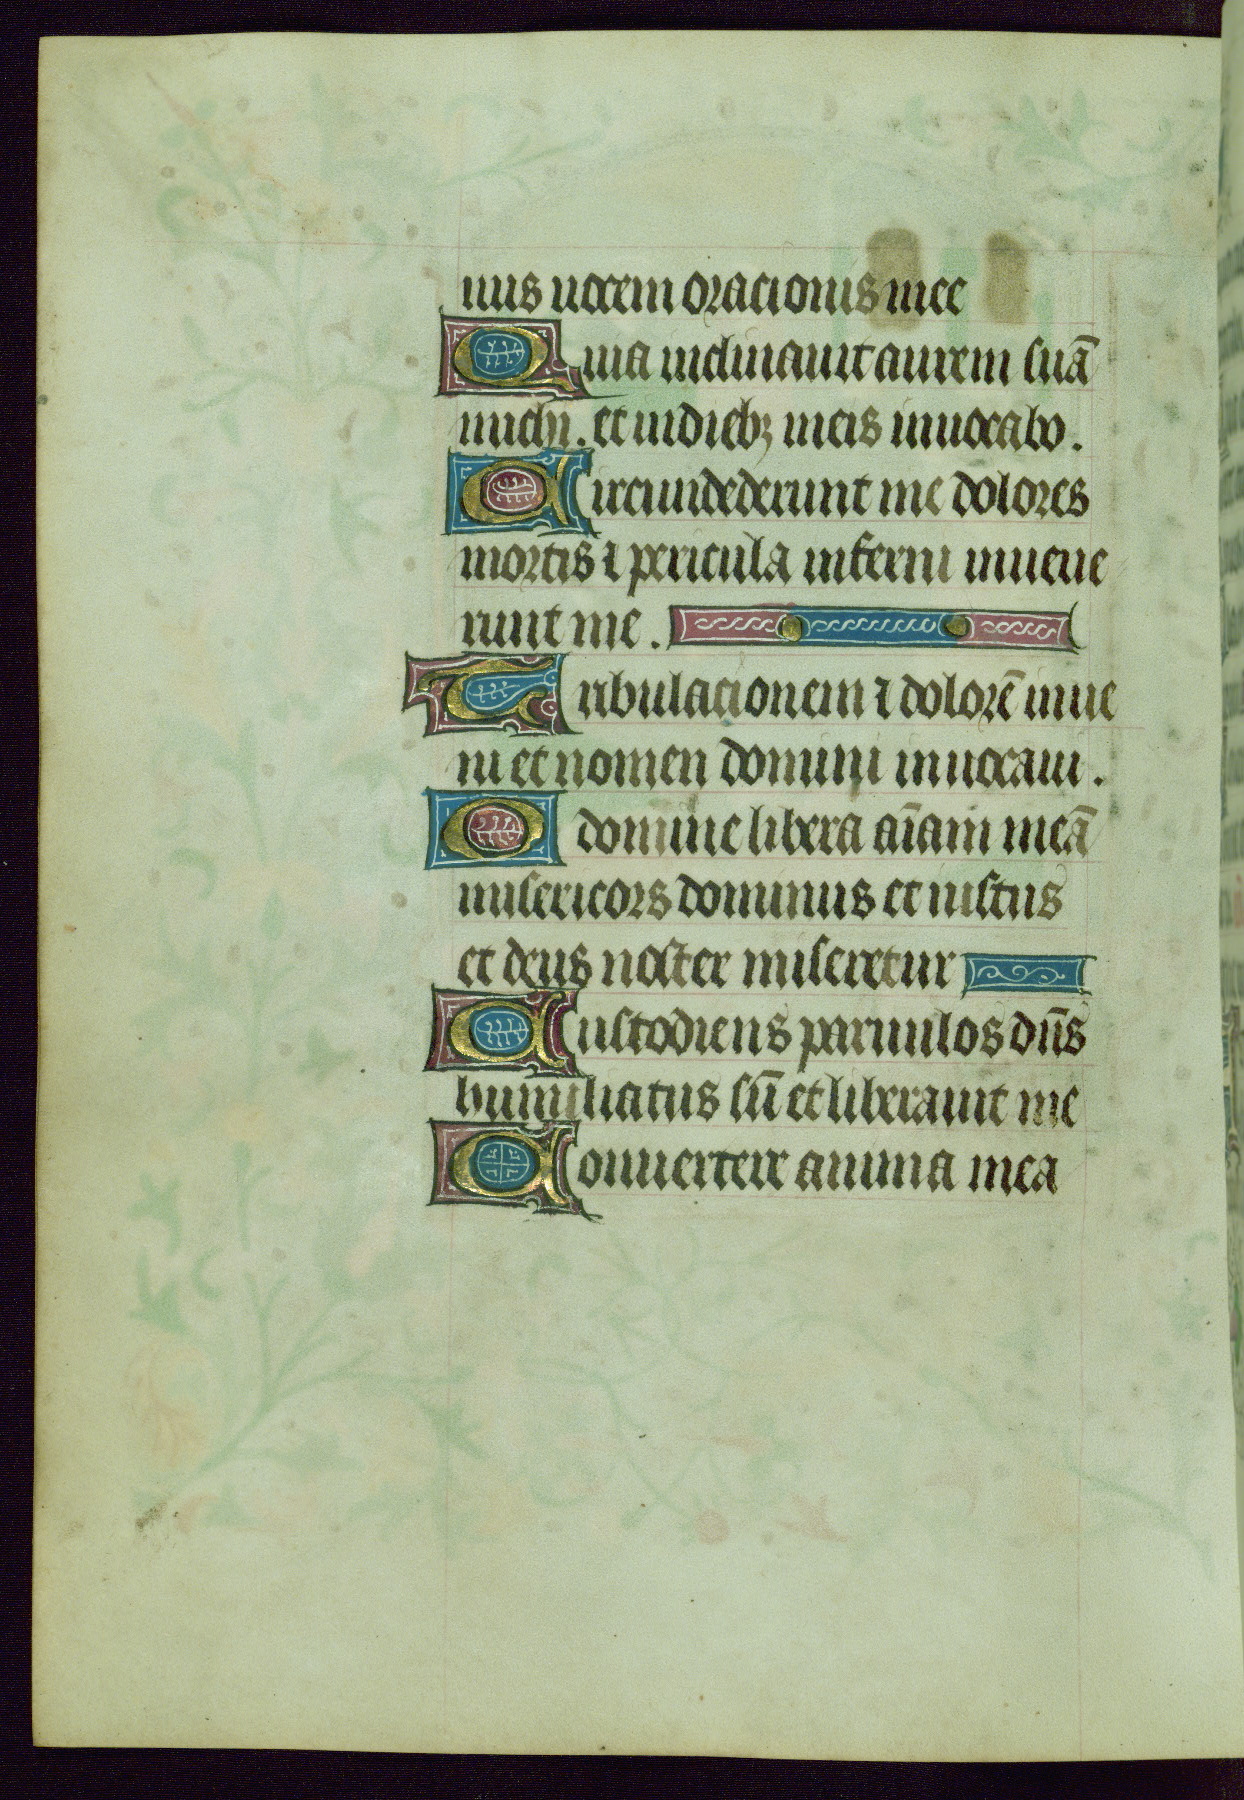 nus uocem oracionis mee
Quia inclinauit aurem suā
michi. et in diebꝫ meis inuocabo.
Circumdederunt me dolores
mortis ⁊ pericula inferni inuene
runt me.
Tribulacionem ⁊ dolorē inue
ni et nomen domini inuocaui.
O domine libera aīam meā
misericors dominus et iustus
et deus noster miseretur
Custodiens paruulos dn̄s
humiliatus sū et liberauit me
Conuertere anima mea